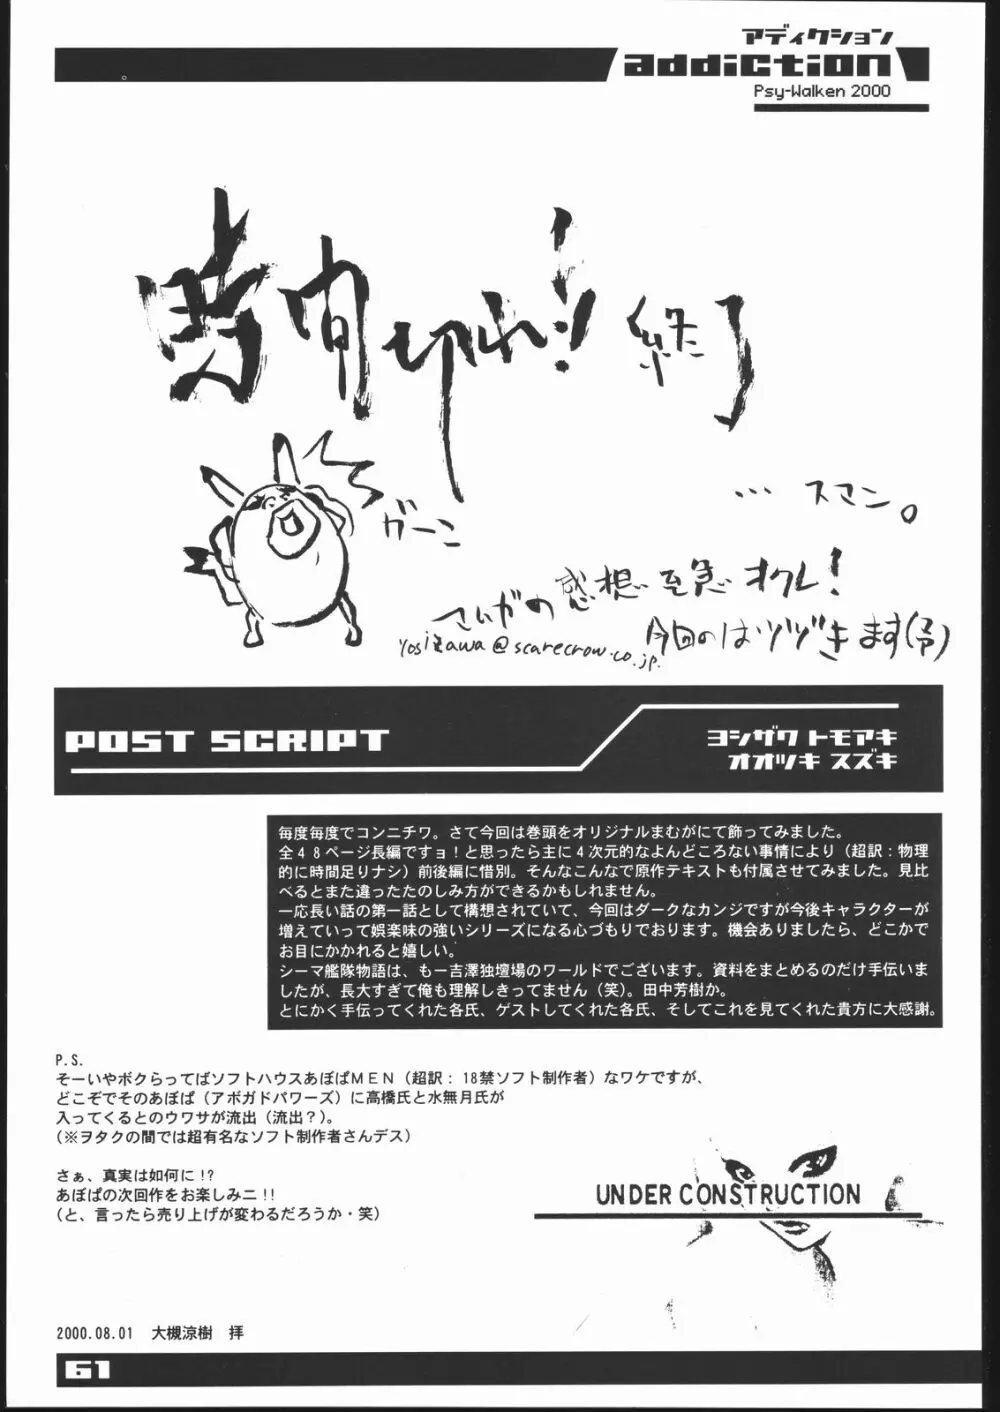 アディクション
addiction
Psy-Walken 2000
時間切れ!! 終了
ガーン
… スマン。
さいがの感想 至急 オクレ!
yosizawa@scarecrow.co.jp.
今回のはツヅキます(予)
POST SCRIPT
ヨシザワ トモアキ
オオツキ スズキ
毎度毎度でコンニチワ。さて今回は巻頭をオリジナルまむがにて飾ってみました。
全48ページ長編ですョ!と思ったら主に4次元的なよんどころない事情により(超訳:物理
的に時間足りナシ)前後編に惜別。そんなこんなで原作テキストも付属させてみました。見比
べるとまた違ったたのしみ方ができるかもしれません。
一応長い話の第一話として構想されていて、今回はダークなカンジですが今後キャラクターが
増えていって娯楽味の強いシリーズになる心づもりでおります。機会ありましたら、どこかで
お目にかかれると嬉しい。
シーマ艦隊物語は、もー吉澤独壇場のワールドでございます。資料をまとめるのだけ手伝いま
したが、長大すぎて俺も理解しきってません(笑)。田中芳樹か。
とにかく手伝ってくれた各氏、ゲストしてくれた各氏、そしてこれを見てくれた貴方に大感謝。
P.S.
そーいやボクらってばソフトハウスあぼぱMEN(超訳: 18禁ソフト制作者)なワケですが、
どこぞでそのあぼぱ(アボガドパワーズ)に高橋氏と水無月氏が
入ってくるとのウワサが流出(流出?)。
(※ヲタクの間では超有名なソフト制作者さんデス)
さぁ、真実は如何に!?
あぼぱの次回作をお楽しみニ!!
(と、言ったら売り上げが変わるだろうか・笑)
UNDER CONSTRUCTION
2000.08.01 大槻涼樹 拝
61